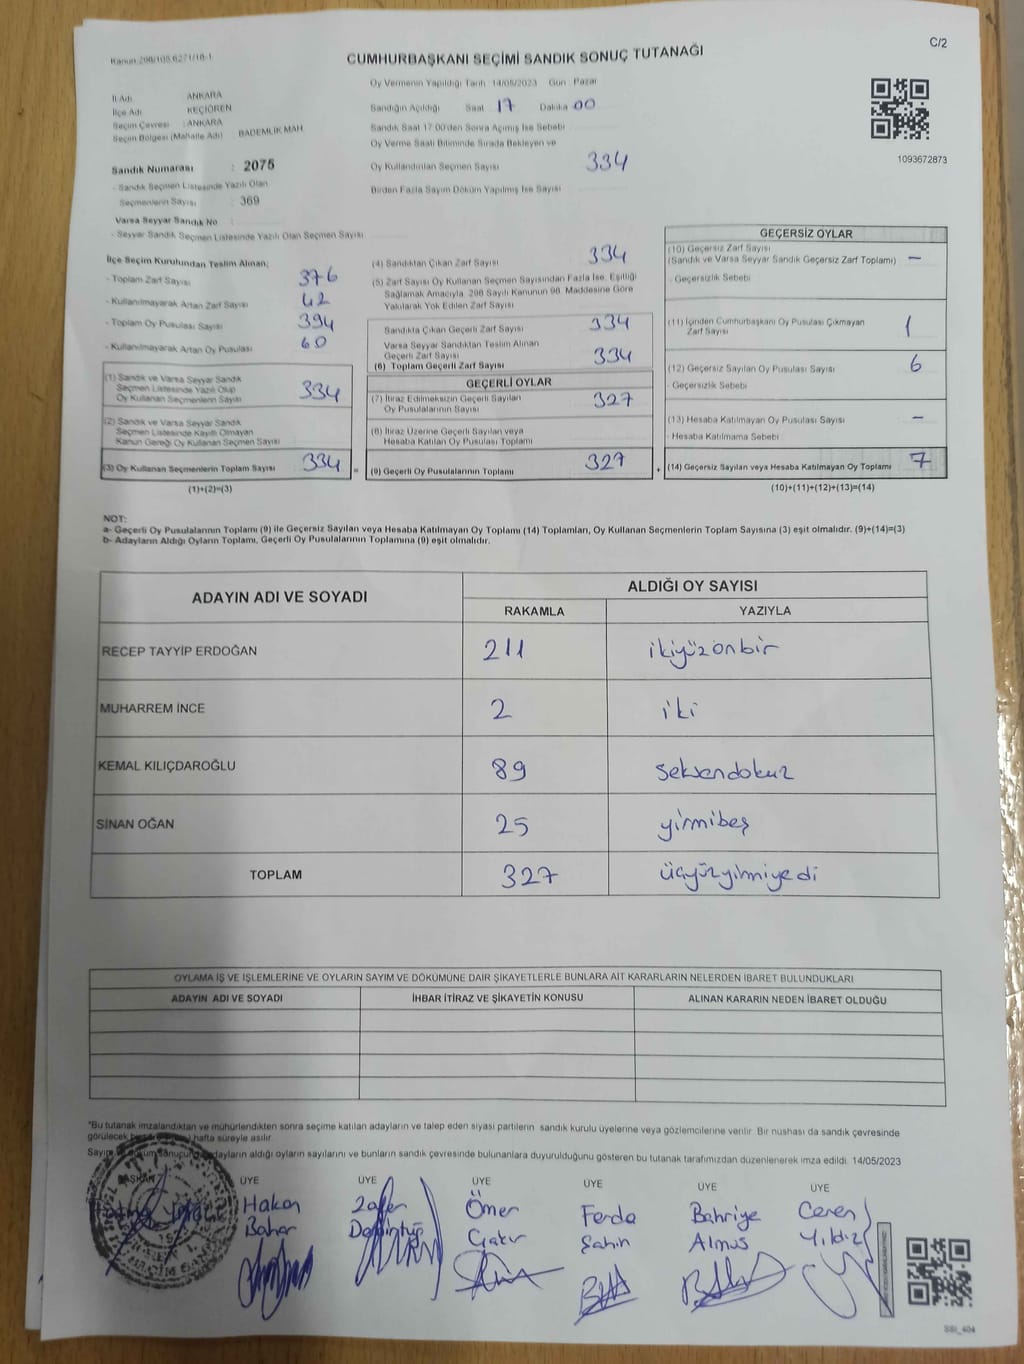 Kanun 298/105,6271/18-1
C/2
CUMHURBAŞKANI SEÇİMİ SANDIK SONUÇ TUTANAĞI
Oy Vermenin Yapıldığı Tarih 14/05/2023 Gün : Pazar
İl Adı ANKARA
İlçe Adı KEÇİÖREN
Seçim Çevresi : ANKARA
Seçim Bölgesi (Mahalle Adı) : BADEMLİK MAH.
Sandığın Açıldığı Saat 17 Dakika 00
Sandık Saat 17:00'den Sonra Açılmış İse Sebebi
Oy Verme Saati Bitiminde Sırada Bekleyen ve
Oy Kullandırılan Seçmen Sayısı 334
Birden Fazla Sayım Döküm Yapılmış İse Sayısı
1093672873
Sandık Numarası : 2075
- Sandık Seçmen Listesinde Yazılı Olan
Seçmenlerin Sayısı : 369
Varsa Seyyar Sandık No :
- Seyyar Sandık Seçmen Listesinde Yazılı Olan Seçmen Sayısı
İlçe Seçim Kurulundan Teslim Alınan;
- Toplam Zarf Sayısı 376
- Kullanılmayarak Artan Zarf Sayısı 42
- Toplam Oy Pusulası Sayısı 394
- Kullanılmayarak Artan Oy Pusulası 60
(1) Sandık ve Varsa Seyyar Sandık
Seçmen Listesinde Yazılı Olup
Oy Kullanan Seçmenlerin Sayısı 334
(2) Sandık ve Varsa Seyyar Sandık
Seçmen Listesinde Kayıtlı Olmayan
Kanun Gereği Oy Kullanan Seçmen Sayısı
(3) Oy Kullanan Seçmenlerin Toplam Sayısı 334 =
(1)+(2)=(3)
(4) Sandıktan Çıkan Zarf Sayısı 334
(5) Zarf Sayısı Oy Kullanan Seçmen Sayısından Fazla İse, Eşitliği
Sağlamak Amacıyla, 298 Sayılı Kanunun 98. Maddesine Göre
Yakılarak Yok Edilen Zarf Sayısı
Sandıkta Çıkan Geçerli Zarf Sayısı 334
Varsa Seyyar Sandıktan Teslim Alınan
Geçerli Zarf Sayısı
(6) Toplam Geçerli Zarf Sayısı 334
GEÇERLİ OYLAR
(7) İtiraz Edilmeksizin Geçerli Sayılan
Oy Pusulalarının Sayısı 327
(8) İtiraz Üzerine Geçerli Sayılan veya
Hesaba Katılan Oy Pusulası Toplamı
(9) Geçerli Oy Pusulalarının Toplamı 327 +
GEÇERSİZ OYLAR
(10) Geçersiz Zarf Sayısı
(Sandık ve Varsa Seyyar Sandık Geçersiz Zarf Toplamı) -
- Geçersizlik Sebebi
(11) İçinden Cumhurbaşkanı Oy Pusulası Çıkmayan
Zarf Sayısı 1
(12) Geçersiz Sayılan Oy Pusulası Sayısı 6
Geçersizlik Sebebi
(13) Hesaba Katılmayan Oy Pusulası Sayısı -
- Hesaba Katılmama Sebebi
(14) Geçersiz Sayılan veya Hesaba Katılmayan Oy Toplamı 7
(10)+(11)+(12)+(13)=(14)
NOT:
a- Geçerli Oy Pusulalarının Toplamı (9) ile Geçersiz Sayılan veya Hesaba Katılmayan Oy Toplamı (14) Toplamları, Oy Kullanan Seçmenlerin Toplam Sayısına (3) eşit olmalıdır. (9)+(14)=(3)
b- Adayların Aldığı Oyların Toplamı, Geçerli Oy Pusulalarının Toplamına (9) eşit olmalıdır.
ADAYIN ADI VE SOYADI
ALDIĞI OY SAYISI
RAKAMLA YAZIYLA
RECEP TAYYİP ERDOĞAN 211 ikiyüzonbir
MUHARREM İNCE 2 iki
KEMAL KILIÇDAROĞLU 89 seksendokuz
SİNAN OĞAN 25 yirmibeş
TOPLAM 327 üçyüzyirmiyedi
OYLAMA İŞ VE İŞLEMLERİNE VE OYLARIN SAYIM VE DÖKÜMÜNE DAİR ŞİKAYETLERLE BUNLARA AİT KARARLARIN NELERDEN İBARET BULUNDUKLARI
ADAYIN ADI VE SOYADI İHBAR İTİRAZ VE ŞİKAYETİN KONUSU ALINAN KARARIN NEDEN İBARET OLDUĞU
*Bu tutanak imzalandıktan ve mühürlendikten sonra seçime katılan adayların ve talep eden siyasi partilerin sandık kurulu üyelerine veya gözlemcilerine verilir. Bir nüshası da sandık çevresinde
görülecek hafta süreyle asılır.
Sayım adayların aldığı oyların sayılarını ve bunların sandık çevresinde bulunanlara duyurulduğunu gösteren bu tutanak tarafımızdan düzenlenerek imza edildi. 14/05/2023
BAŞKAN ÜYE ÜYE ÜYE ÜYE ÜYE ÜYE
Hakan Zafer Ömer Ferda Bahriye Ceren
Bahar Şahin Almus Yıldız